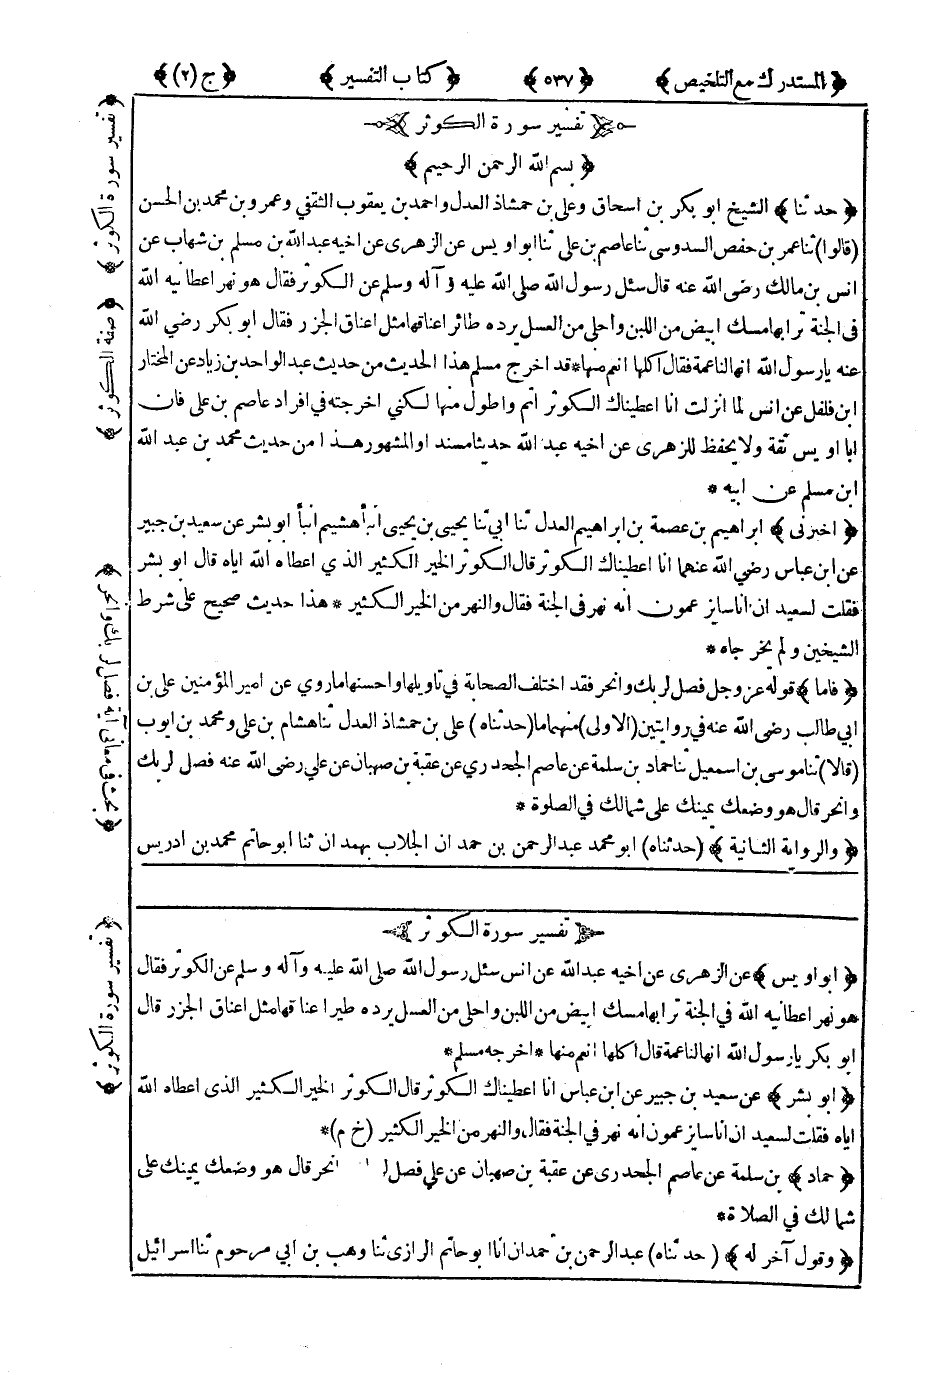 ﴿المستدرك مع التلخيص﴾ ﴿٥٣٧﴾ ﴿كتاب التفسير﴾ ﴿ج (٢)﴾
تفسير سورة الكوثر
﴿بسم الله الرحمن الرحيم﴾
﴿حدثنا﴾ الشيخ ابو بكر بن اسحاق وعلى بن حمشاذ العدل واحمد بن يعقوب الثقفى وعمرو بن محمد بن الحسن
(قالوا) ثنا عمر بن حفص السدوسى ثنا عاصم بن على ثنا ابو اويس عن الزهرى عن اخيه عبد الله بن مسلم بن شهاب عن
انس بن مالك رضى الله عنه قال سئل رسول الله صلى الله عليه وآله وسلم عن الكوثر فقال هو نهر اعطانيه الله
فى الجنة ترابها مسك ابيض من اللبن واحلى من العسل يرده طائر اعناقها مثل اعناق الجزر فقال ابو بكر رضي الله
عنه يا رسول الله انها لناعمة فقال آكلها انعم منها * قد اخرج مسلم هذا الحديث من حديث عبد الواحد بن زياد عن المختار
ابن فلفل عن انس لما انزلت انا اعطيناك الكوثر اتم واطول منها لكني اخرجته في افراد عاصم بن على فان
ابا اويس ثقة ولا يحفظ للزهرى عن اخيه عبد الله حديثا مسند او المشهور هذا من حديث محمد بن عبد الله
ابن مسلم عن ابيه *
﴿اخبرنى﴾ ابراهيم بن عصمة بن ابراهيم العدل ثنا ابي ثنا يحيى بن يحيى انبأ هشيم انبأ ابو بشر عن سعيد بن جبير
عن ابن عباس رضي الله عنهما انا اعطيناك الكوثر قال الكوثر الخير الكثير الذي اعطاه الله اياه قال ابو بشر
فقلت لسعيد ان اناسا يزعمون انه نهر فى الجنة فقال والنهر من الخير الكثير * هذا حديث صحيح على شرط
الشيخين ولم يخرجاه *
﴿فاما﴾ قوله عز وجل فصل لربك وانحر فقد اختلف الصحابة في تاويلها واحسنها ما روي عن امير المؤمنين على بن
ابي طالب رضى الله عنه في روايتين (الاولى) منهما ما (حدثناه) على بن حمشاذ العدل ثنا هشام بن على ومحمد بن ايوب
(قالا) ثنا موسى بن اسمعيل ثنا حماد بن سلمة عن عاصم الجحدري عن عقبة بن صهبان عن علي رضى الله عنه فصل لربك
وانحر قال هو وضعك يمينك على شمالك في الصلوة *
﴿والرواية الثانية﴾ (حدثناه) ابو محمد عبد الرحمن بن حمدان الجلاب بهمدان ثنا ابو حاتم محمد بن ادريس
تفسير سورة الكوثر
﴿ابو اويس﴾ عن الزهرى عن اخيه عبد الله عن انس سئل رسول الله صلى الله عليه وآله وسلم عن الكوثر فقال
هو نهر اعطانيه الله في الجنة ترابها مسك ابيض من اللبن واحلى من العسل يرده طير اعناقها مثل اعناق الجزر قال
ابو بكر يا رسول الله انها لناعمة قال اكلها انعم منها * اخرجه مسلم *
﴿ابو بشر﴾ عن سعيد بن جبير عن ابن عباس انا اعطيناك الكوثر قال الكوثر الخير الكثير الذى اعطاه الله
اياه فقلت لسعيد ان اناسا يزعمون انه نهر في الجنة فقال والنهر من الخير الكثير (خ م) *
﴿حماد﴾ بن سلمة عن عاصم الجحدرى عن عقبة بن صهبان عن علي فصل انحر قال هو وضعك يمينك على
شمالك في الصلاة *
﴿وقول آخر له﴾ (حدثناه) عبد الرحمن بن حمدان انا ابو حاتم الرازى ثنا وهب بن ابي مرحوم ثنا اسرائيل
﴿تفسير سورة الكوثر﴾
﴿صفة الكوثر﴾
﴿بحث في معانى آية فصل لربك وانحر﴾
﴿تفسير سورة الكوثر﴾